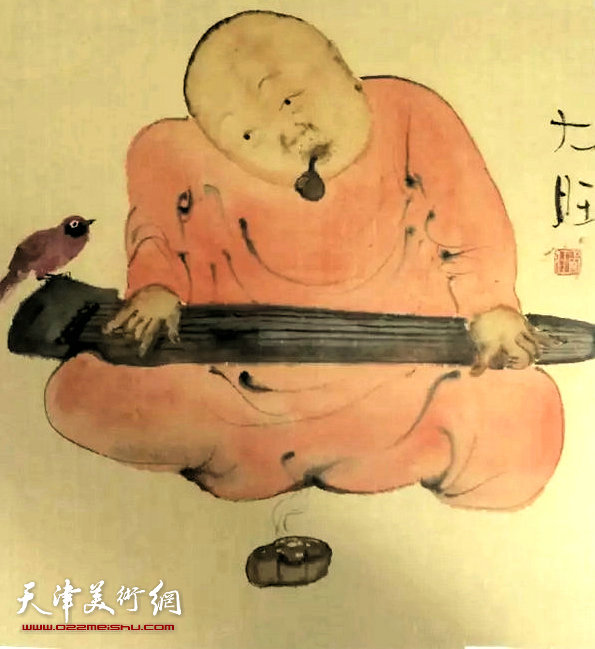 大旺
天津美術網
www.022meishu.com